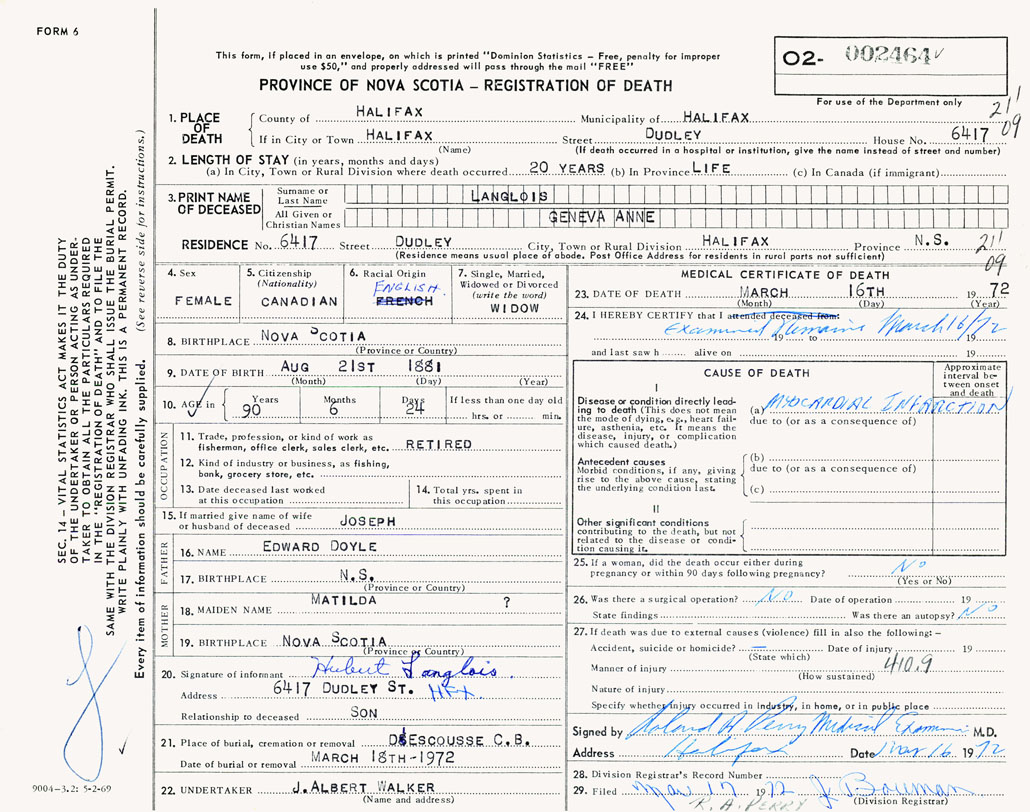 FORM 6
This form, if placed in an envelope, on which is printed "Dominion Statistics – Free, penalty for improper
use $50," and properly addressed will pass through the mail "FREE"
PROVINCE OF NOVA SCOTIA – REGISTRATION OF DEATH
O2- 002464
For use of the Department only
21'
09
1. PLACE OF DEATH
County of HALIFAX Municipality of HALIFAX
If in City or Town HALIFAX Street DUDLEY House No. 6417
(Name) (If death occurred in a hospital or institution, give the name instead of street and number)
2. LENGTH OF STAY (in years, months and days)
(a) In City, Town or Rural Division where death occurred 20 YEARS (b) In Province LIFE (c) In Canada (if immigrant)
3. PRINT NAME OF DECEASED
Surname or Last Name LANGLOIS
All Given or Christian Names GENEVA ANNE
RESIDENCE No. 6417 Street DUDLEY City, Town or Rural Division HALIFAX Province N.S.
(Residence means usual place of abode. Post Office Address for residents in rural parts not sufficient)
21'
09
4. Sex
FEMALE
5. Citizenship
(Nationality)
CANADIAN
6. Racial Origin
ENGLISH
FRENCH
7. Single, Married,
Widowed or Divorced
(write the word)
WIDOW
8. BIRTHPLACE NOVA SCOTIA
(Province or Country)
9. DATE OF BIRTH AUG 21ST 1881
(Month) (Day) (Year)
10. AGE in
Years Months Days If less than one day old
90 6 24 hrs. or min.
OCCUPATION
11. Trade, profession, or kind of work as
fisherman, office clerk, sales clerk, etc. RETIRED
12. Kind of industry or business, as fishing,
bank, grocery store, etc.
13. Date deceased last worked
at this occupation
14. Total yrs. spent in
this occupation
15. If married give name of wife
or husband of deceased JOSEPH
FATHER
16. NAME EDWARD DOYLE
17. BIRTHPLACE N.S.
(Province or Country)
MOTHER
18. MAIDEN NAME MATILDA ?
19. BIRTHPLACE NOVA SCOTIA
(Province or Country)
20. Signature of informant Hubert Langlois
Address 6417 DUDLEY ST. HFX.
Relationship to deceased SON
21. Place of burial, cremation or removal D'ESCOUSSE C.B.
Date of burial or removal MARCH 18TH-1972
22. UNDERTAKER J. ALBERT WALKER
(Name and address)
MEDICAL CERTIFICATE OF DEATH
23. DATE OF DEATH MARCH 16TH 1972
(Month) (Day) (Year)
24. I HEREBY CERTIFY that I attended deceased from:
Examined Remains March 16/72
19 to 19
and last saw h alive on 19
CAUSE OF DEATH
Approximate
interval be-
tween onset
and death
I
Disease or condition directly lead-
ing to death (This does not mean
the mode of dying, e.g., heart fail-
ure, asthenia, etc. It means the
disease, injury, or complication
which caused death.)
(a) MYOCARDIAL INFARCTION
due to (or as a consequence of)
Antecedent causes
Morbid conditions, if any, giving
rise to the above cause, stating
the underlying condition last.
(b)
due to (or as a consequence of)
(c)
II
Other significant conditions
contributing to the death, but not
related to the disease or condi-
tion causing it.
25. If a woman, did the death occur either during
pregnancy or within 90 days following pregnancy? No
(Yes or No)
26. Was there a surgical operation? No Date of operation 19
State findings Was there an autopsy? No
27. If death was due to external causes (violence) fill in also the following: –
Accident, suicide or homicide? — Date of injury 19
(State which)
Manner of injury 410.9
(How sustained)
Nature of injury
Specify whether injury occurred in industry, in home, or in public place
Signed by Roland H Perry Medical Examiner M.D.
Address Halifax Date Mar 16 1972
28. Division Registrar's Record Number
29. Filed Mar 17 1972 J. Bowman
(Division Registrar)
R. A. PERRY
SEC. 14 – VITAL STATISTICS ACT MAKES IT THE DUTY
OF THE UNDERTAKER OR PERSON ACTING AS UNDER-
TAKER TO OBTAIN ALL THE PARTICULARS REQUIRED
IN THE "REGISTRATION OF DEATH" AND TO FILE THE
SAME WITH THE DIVISION REGISTRAR WHO SHALL ISSUE THE BURIAL PERMIT.
WRITE PLAINLY WITH UNFADING INK. THIS IS A PERMANENT RECORD.
Every item of information should be carefully supplied. (See reverse side for instructions.)
9004-3.2: 5-2-69